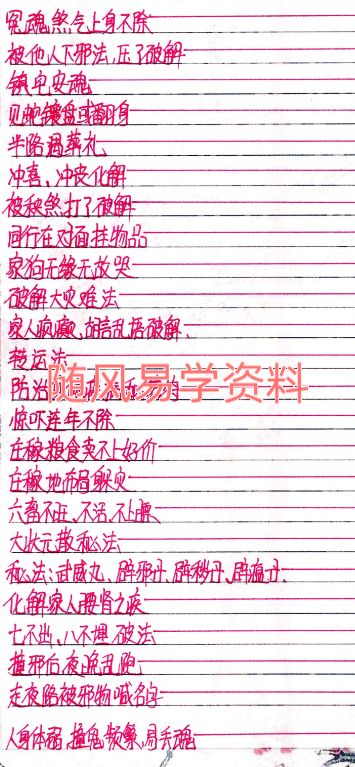 冤魂煞气上身不除
被他人下邪法,压了破解
镇宅安魂
见蛇盘或翻身
半路遇葬礼
冲喜、冲丧化解
被秧煞打了破解
同行在对面挂物品
家狗无缘无故哭
破解大灾难法
家人疯癫、胡言乱语破解、
转运法
随风易学资料
防治
惊吓连年不除
庄稼粮食卖不上好价
庄稼地布局躲灾
六畜不旺、不活、不上膘
大状元散秘法
秘法:武威丸、辟邪丹、辟秽丹、辟瘟丹、
化解家人腰肾之疾
七不出、八不埋破法
撞邪后夜晚乱跑;
走夜路被邪物喊名字
人身体弱,撞鬼频繁,易丢魂